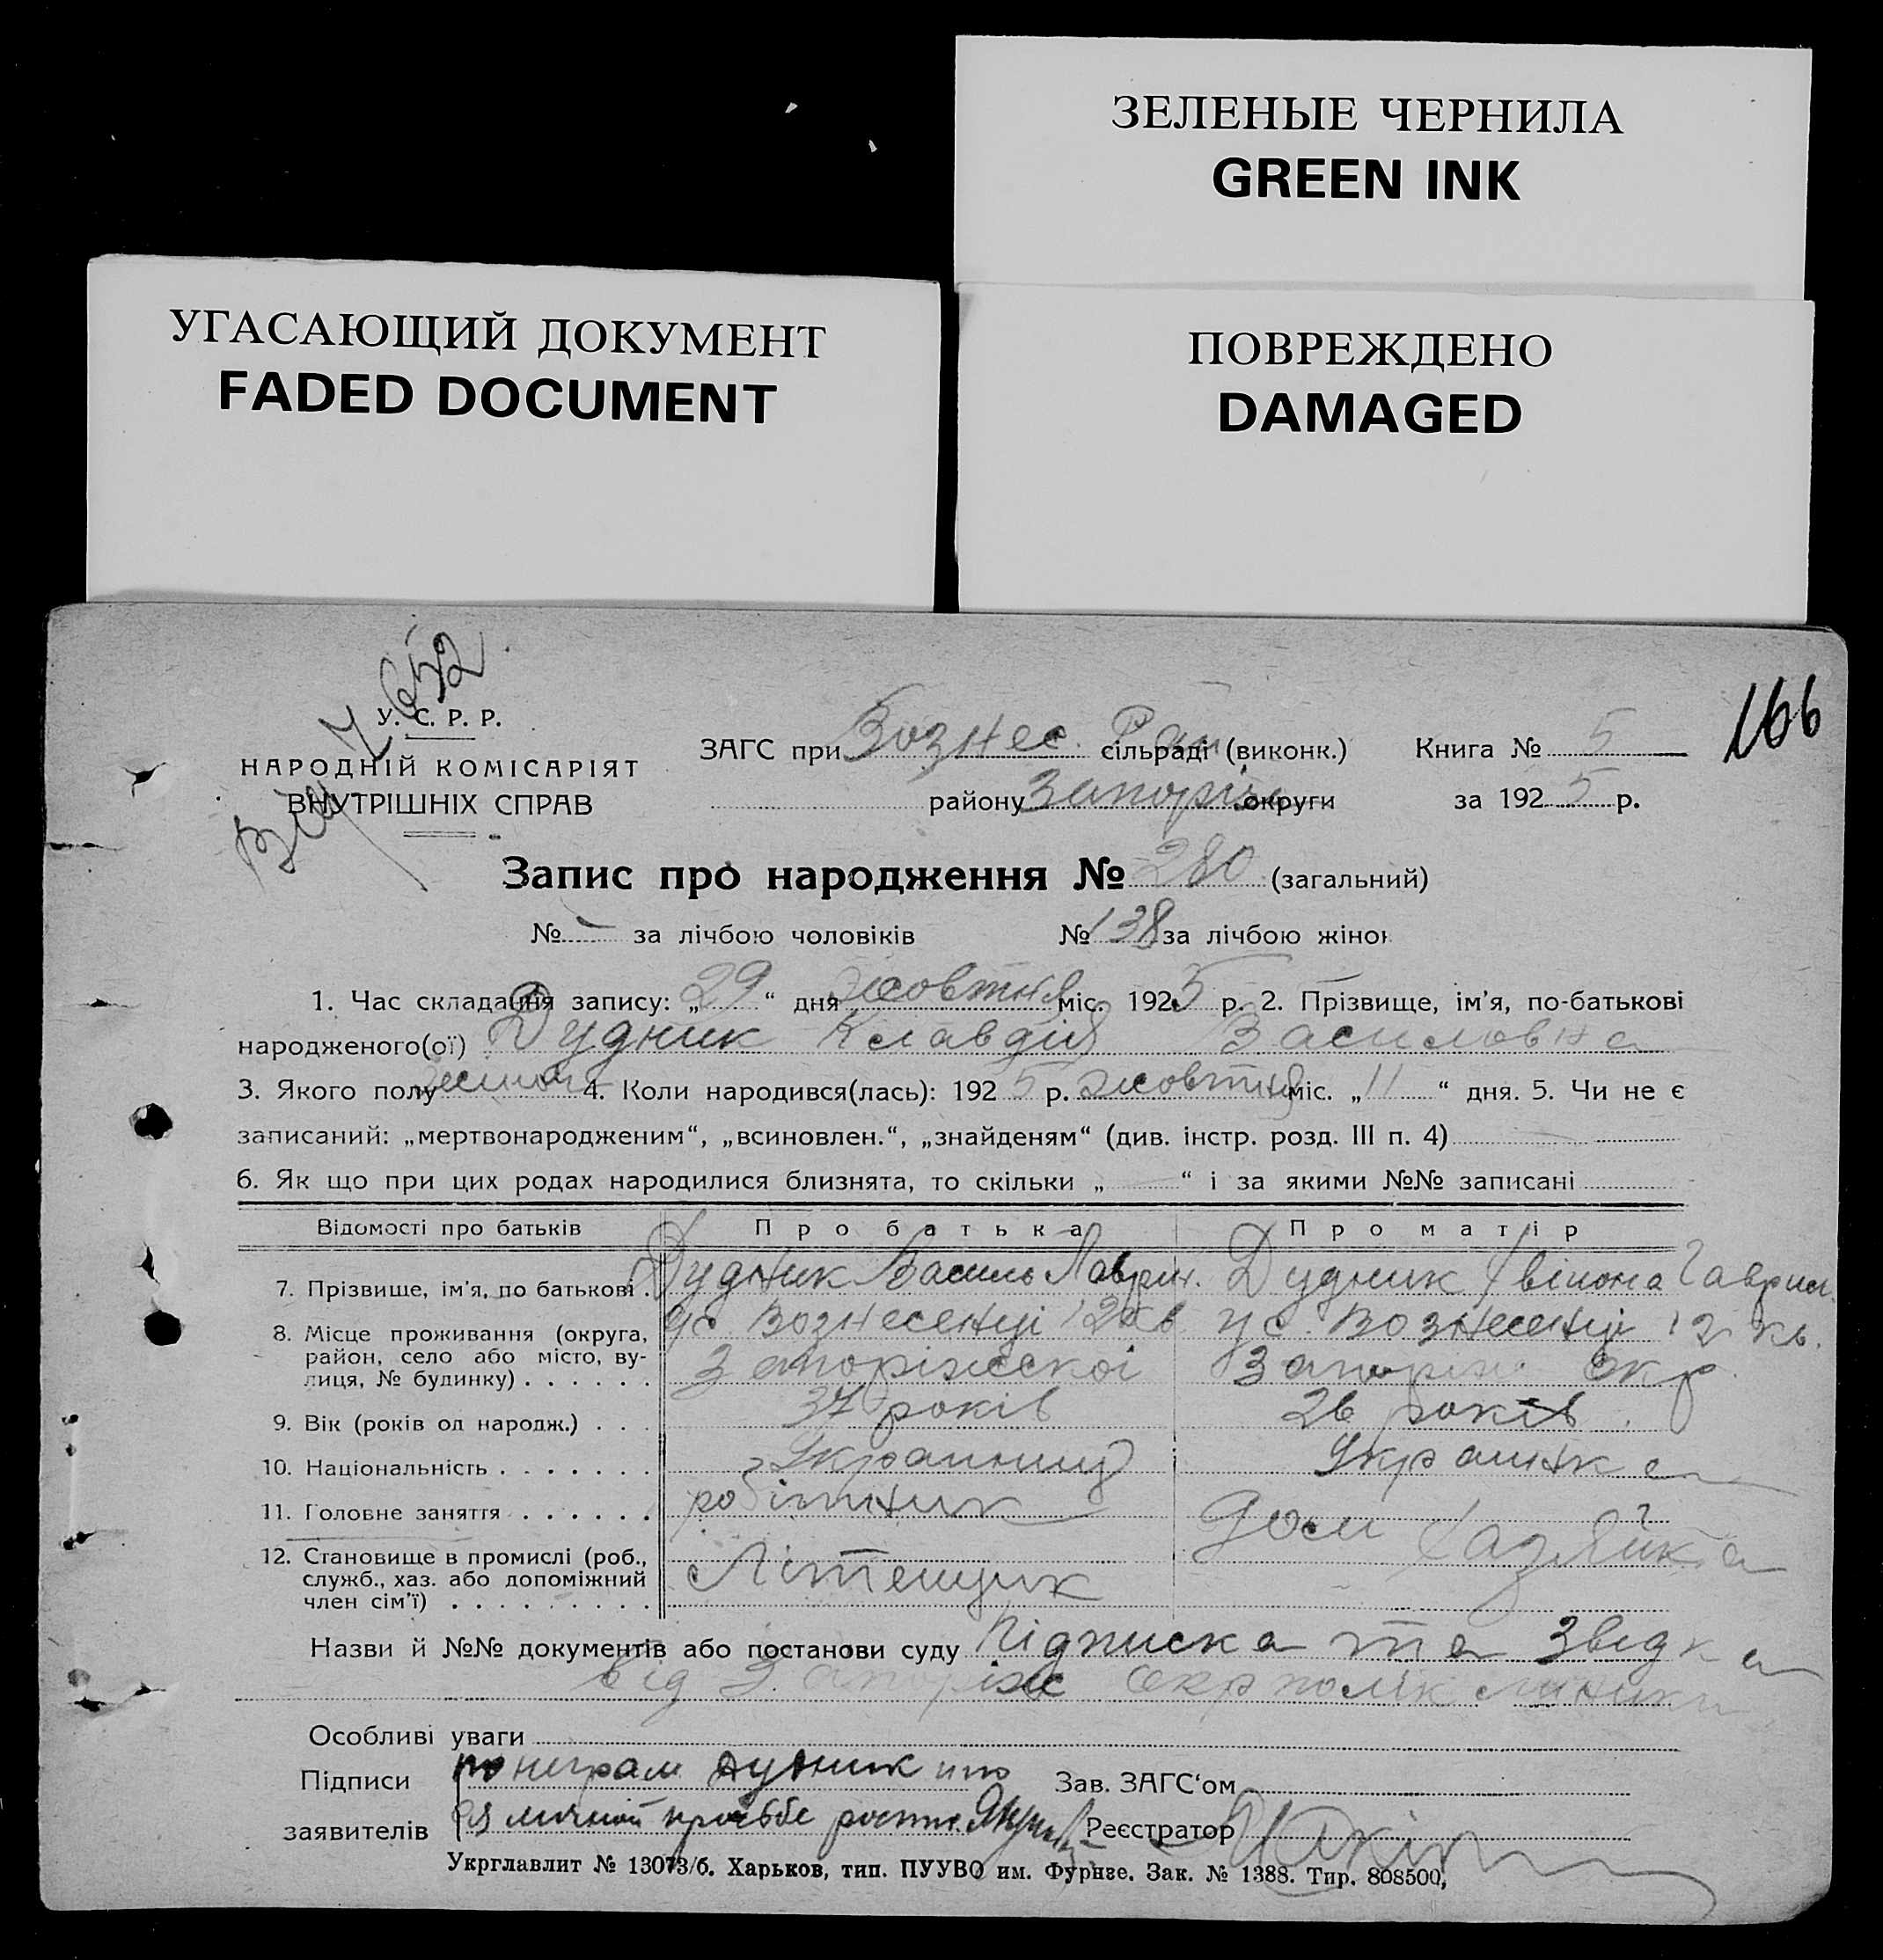 ЗЕЛЕНЫЕ ЧЕРНИЛА
GREEN INK
УГАСАЮЩИЙ ДОКУМЕНТ
FADED DOCUMENT
ПОВРЕЖДЕНО
DAMAGED
166
У. С. Р. Р.
НАРОДНІЙ КОМІСАРІЯТ
ВНУТРІШНІХ СПРАВ
ЗАГС при Вознес. Рай сільраді (виконк.) Книга № 5
району Запоріж округи за 1925 р.
Запис про народження № 280 (загальний)
№ – за лічбою чоловіків № 138 за лічбою жінок
1. Час складання запису: „29“ дня жовтня міс. 1925 р. 2. Прізвище, ім'я, по-батькові
народженого(ої) Дудник Клавдія Василовна
3. Якого полу 4. Коли народився(лась): 1925 р. жовтня міс. „11“ дня. 5. Чи не є
записаний: „мертвонародженим“, „всиновлен.“, „знайденям“ (див. інстр. розд. III п. 4)
6. Як що при цих родах народилися близнята, то скільки „ “ і за якими №№ записані
Відомості про батьків Про батька Про матір
7. Прізвище, ім'я, по батькові Дудник Василь Лаврин. Дудник Гаврил.
8. Місце проживання (округа, район, село або місто, вулиця, № будинку) у с Вознесенці 12 кв Запоріжскої у с. Вознесенці 12 кв. Запоріж окр.
9. Вік (років од народж.) 37 років 26 років
10. Національність Украинець Украинка
11. Головне заняття робітник Дом Хазяйка
12. Становище в промислі (роб., служб., хаз. або допоміжний член сім'ї) Літейщик
Назви й №№ документів або постанови суду Підписка та Звідка
від Запоріж Окрполіклініки
Особливі уваги
Підписи Дудник Зав. ЗАГС'ом
заявителів личной просьбе роспис. Реєстратор
Укрглавлит № 13073/б. Харьков, тип. ПУУВО им. Фрунзе. Зак. № 1388. Тир. 808500,